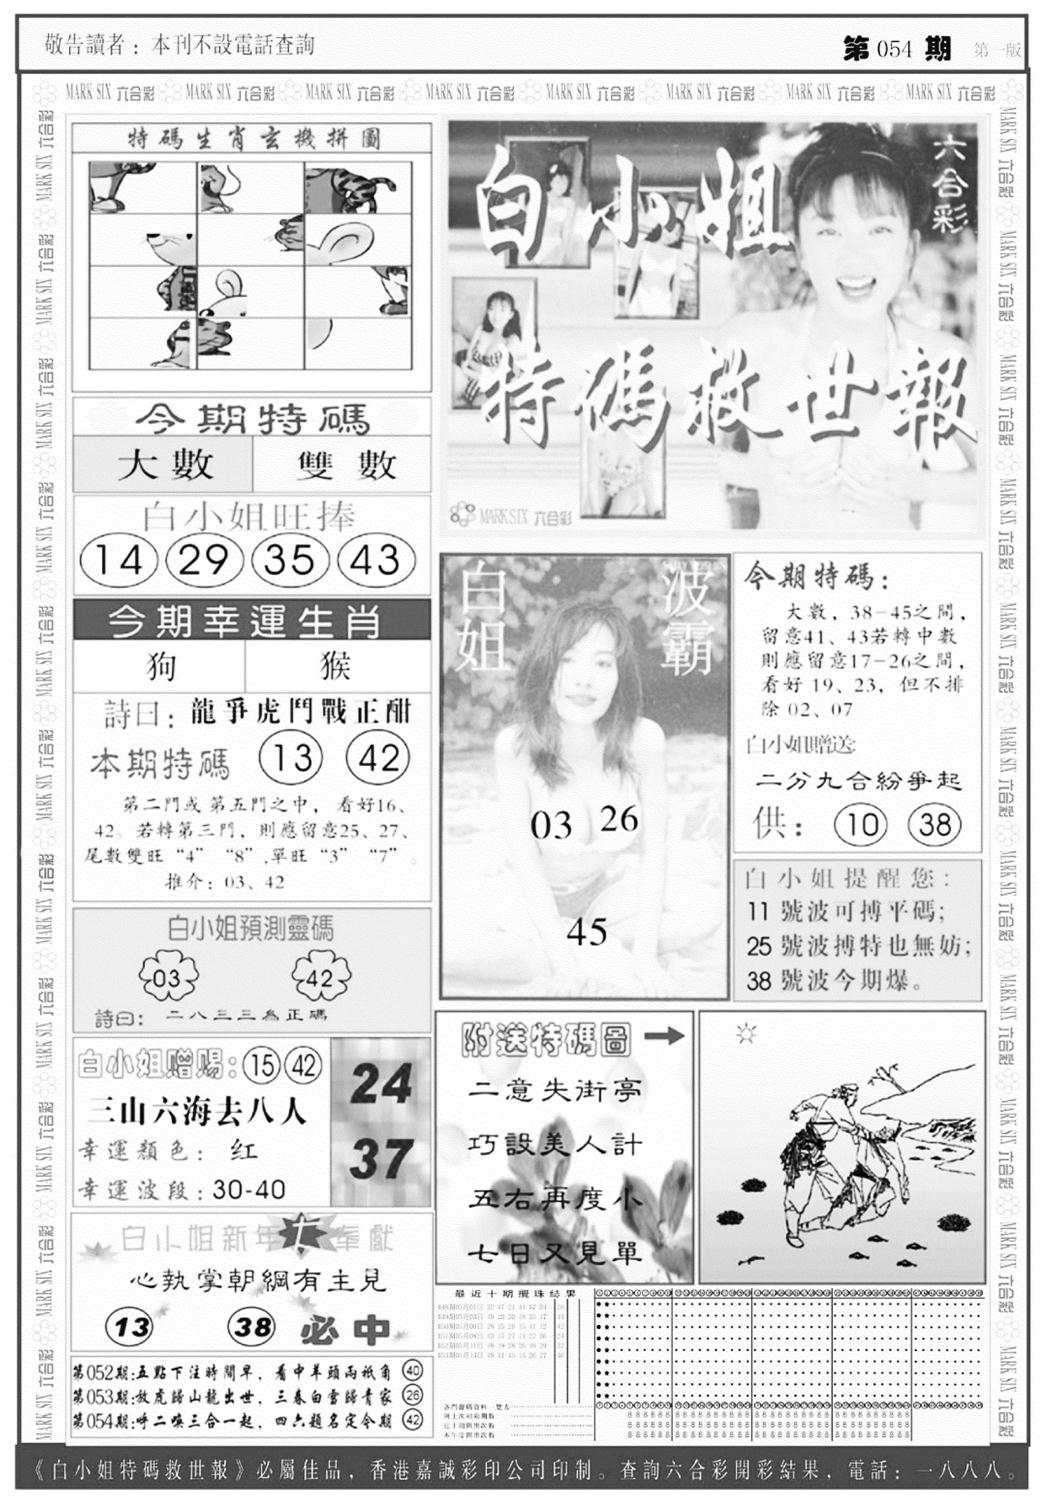 敬告讀者：本刊不設電話查詢
第 054 期 第一版
MARK SIX 六合彩 MARK SIX 六合彩 MARK SIX 六合彩 MARK SIX 六合彩 MARK SIX 六合彩 MARK SIX 六合彩 MARK SIX 六合彩 MARK SIX 六合彩
特碼生肖玄機拼圖
今期特碼
大數 雙數
白小姐旺捧
14 29 35 43
今期幸運生肖
狗 猴
詩曰：龍爭虎鬥戰正酣
本期特碼 13 42
第二門或第五門之中，看好16、
42。若轉第三門，則應留意25、27、
尾數雙旺“4”“8”,單旺“3”“7”。
推介：03、42
白小姐預測靈碼
03 42
詩曰：二八三三為正碼
白小姐贈賜：15 42
三山六海去八人
幸運顏色：红
幸運波段：30-40
24
37
白小姐新年七奉獻
心執掌朝綱有主見
13 38 必中
第052期:五點下注時間早，看中羊頭兩祇角 40
第053期:放虎歸山龍出世，三春白雪歸青家 26
第054期:呼二喚三合一起，四六題名定今期 42
白小姐
六合彩
特碼救世報
MARK SIX 六合彩
白姐
波霸
03 26
45
今期特碼：
大數，38-45之間，
留意41、43若轉中數
則應留意17-26之間，
看好19、23，但不排
除02、07
白小姐贈送:
二分九合紛爭起
供：10 38
白小姐提醒您：
11 號波可搏平碼；
25 號波搏特也無妨；
38 號波今期爆。
附送特碼圖
二意失街亭
巧設美人計
五右再度小
七日又見單
最近十期攪珠結果
《白小姐特碼救世報》必屬佳品，香港嘉誠彩印公司印制。查詢六合彩開彩結果，電話：一八八八。